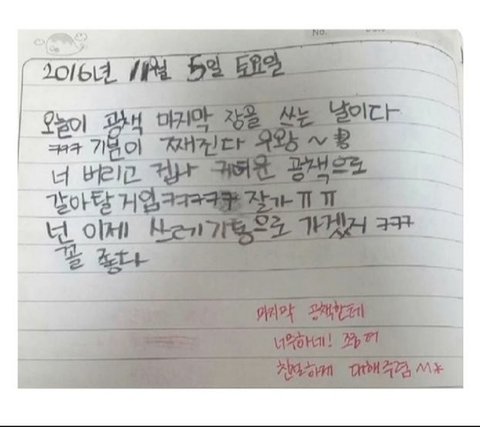 2016년 11월 5일 토요일
오늘이 공책 마지막 장을 쓰는 날이다
ㅋㅋㅋ 기분이 째진다 우왕~
너 버리고 겁나 귀여운 공책으로
갈아탈거임ㅋㅋㅋㅋㅋ 잘가ㅠㅠ
넌 이제 쓰레기통으로 가겠지 ㅋㅋㅋ
꼴 좋다
마지막 공책한테
너무하네! 조금 더
친절하게 대해주렴 ^^*